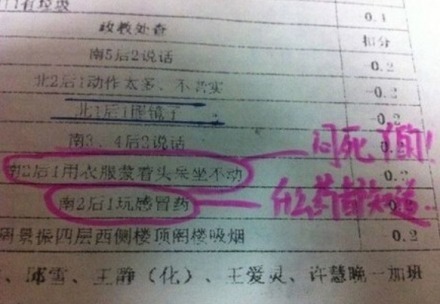 政教处查 扣分
南5后2说话 0.2
北2后1动作太多、不老实 0.2
北1后1照镜子 0.2
南3、4后2说话 0.2
南2后1用衣服蒙着头呆坐不动
闷死了的!
南2后1玩感冒药
什么药都知道
四层西侧楼顶阁楼吸烟 0.2
雪、王静（化）、王爱灵、许慧晚一加班